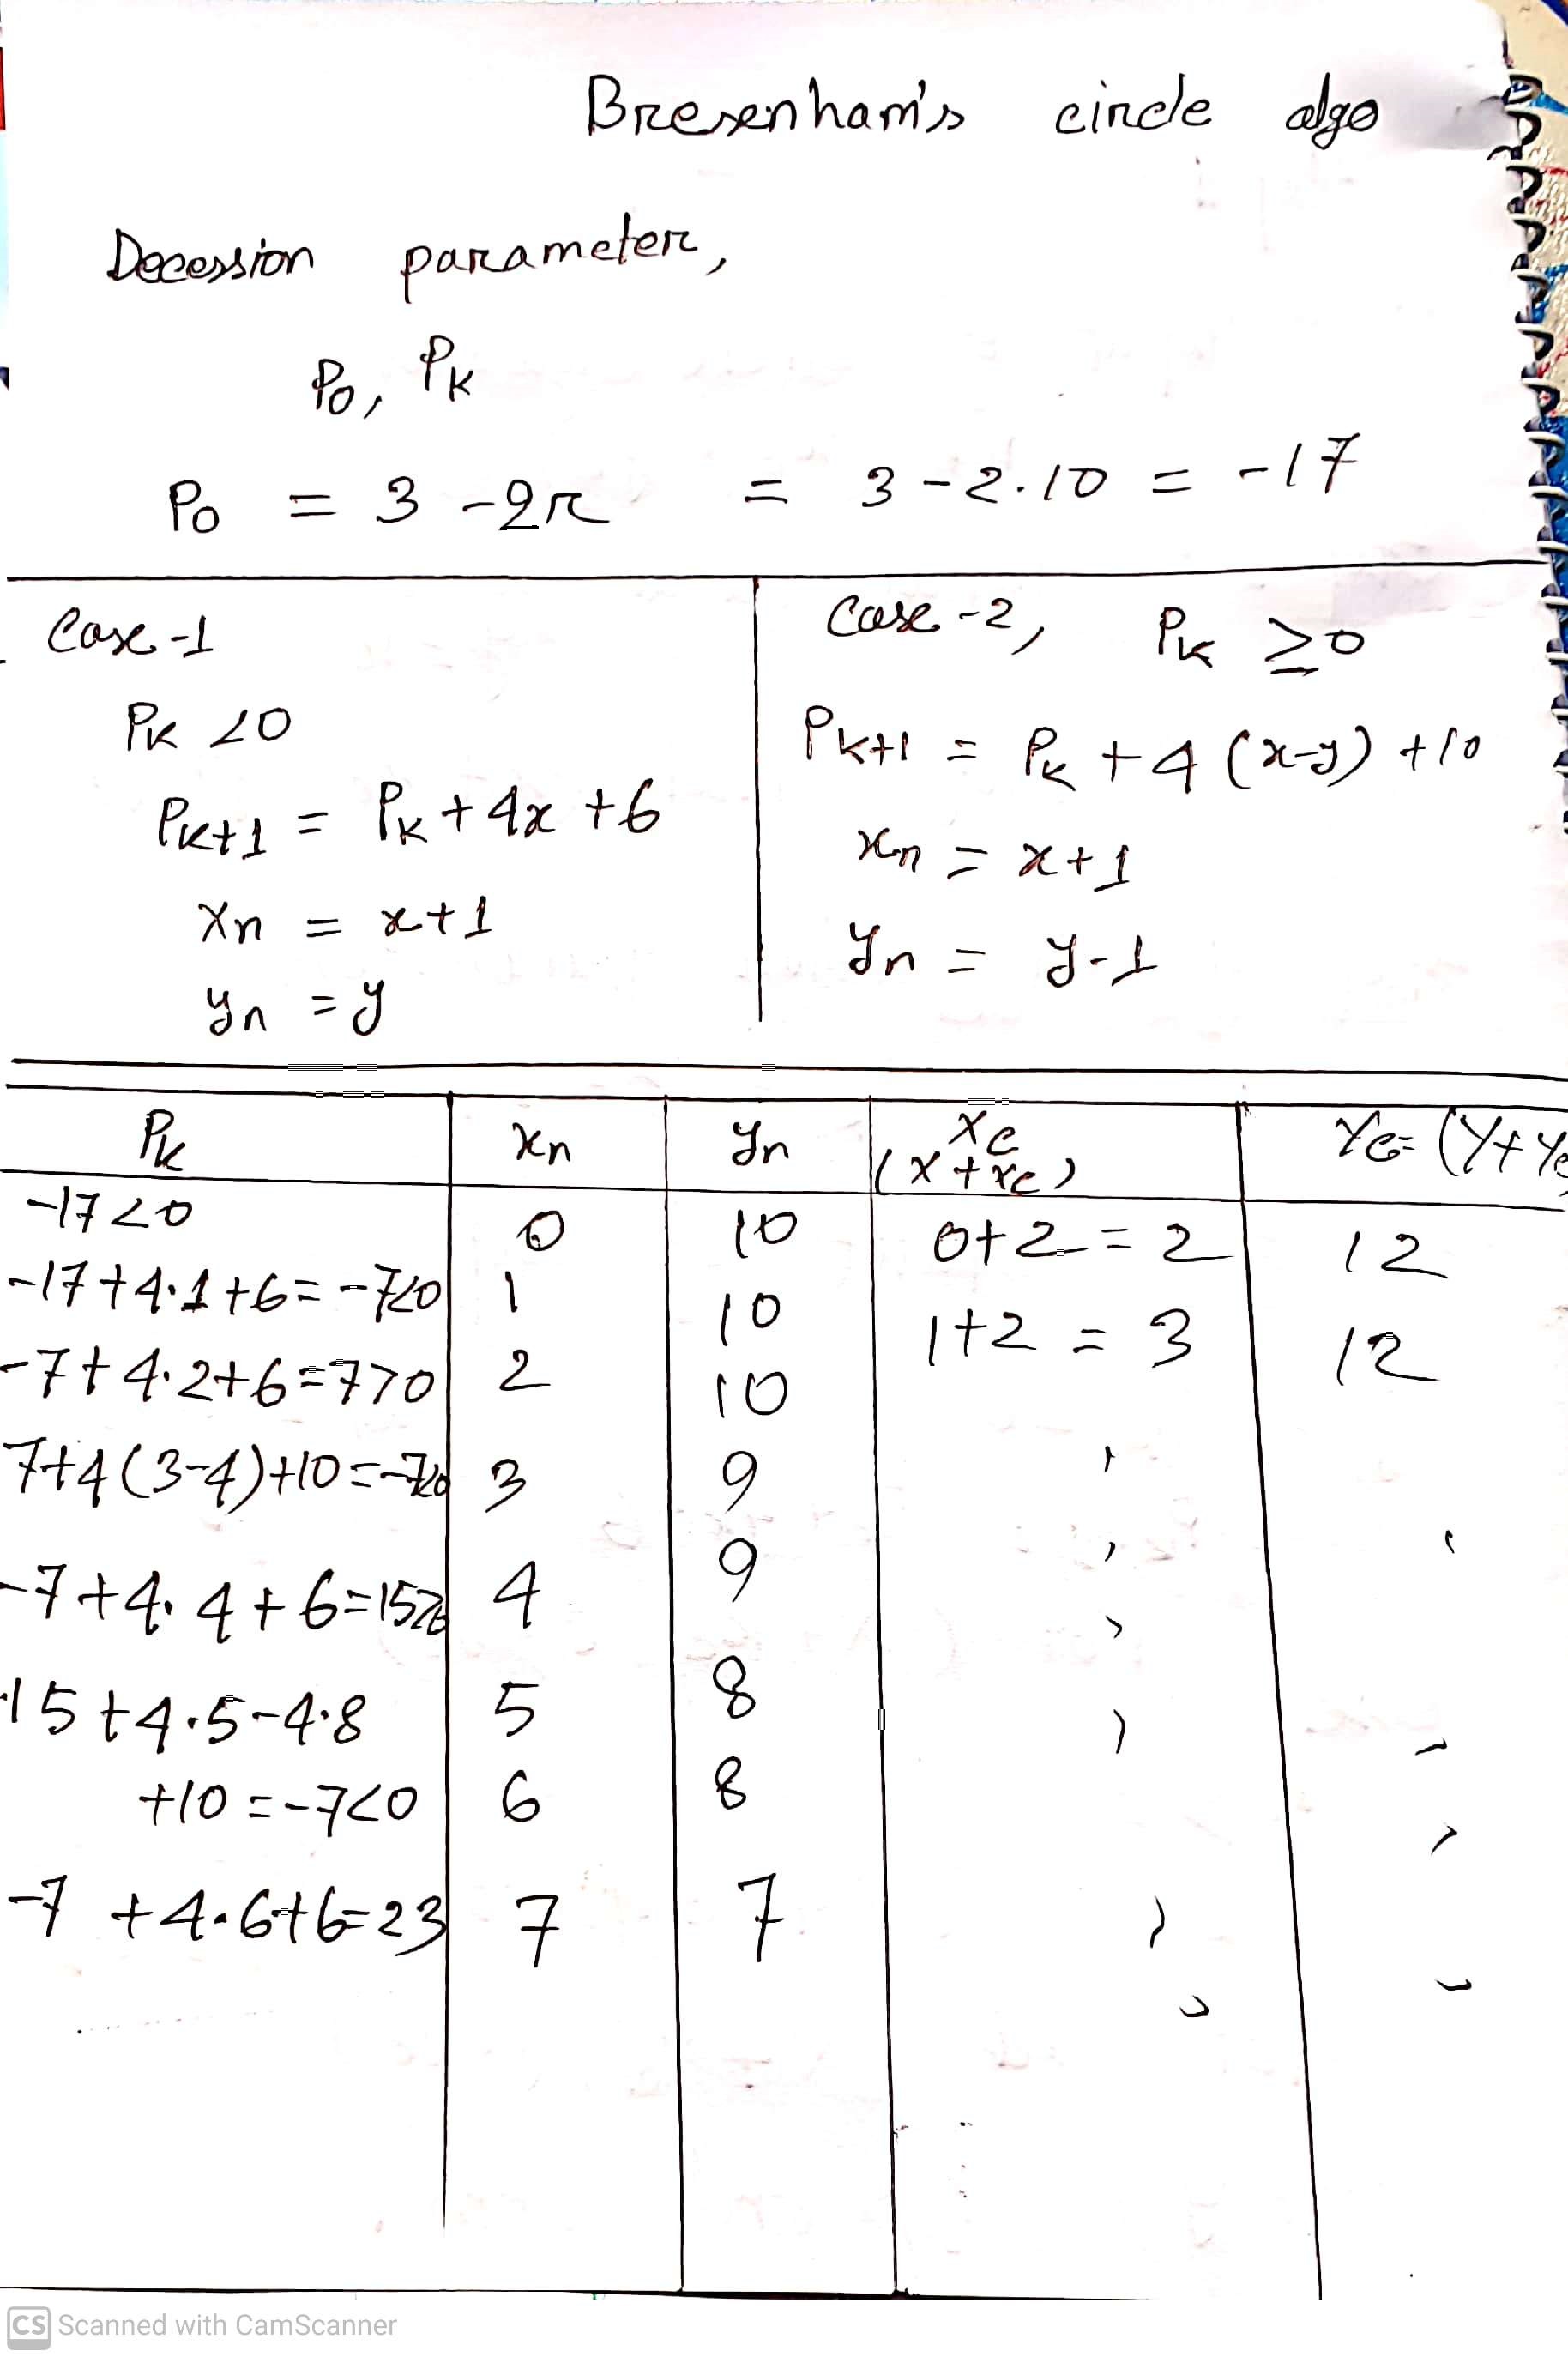 Bresenham's circle algo
Decession parameter,
P0, PK
P0 = 3 - 2r = 3 - 2.10 = -17
Case-1
PK <0
PK+1 = PK + 4x + 6
Xn = x+1
yn = y
Case-2, PK ≥0
PK+1 = PK + 4 (x-y) +10
xn = x+1
yn = y-1
PK xn yn Xc (X + xc) Yc= (Y+Yc)
-17<0 0 10 0+2 = 2 12
-17+4.1+6= -7<0 1 10 1+2 = 3 12
-7+4.2+6=7>0 2 10
7+4(3-4)+10=-7<0 3 9
-7+4.4+6=15>0 4 9
15+4.5-4.8 5 8
+10=-7<0 6 8
-7 +4.6+6=23 7 7
CS Scanned with CamScanner